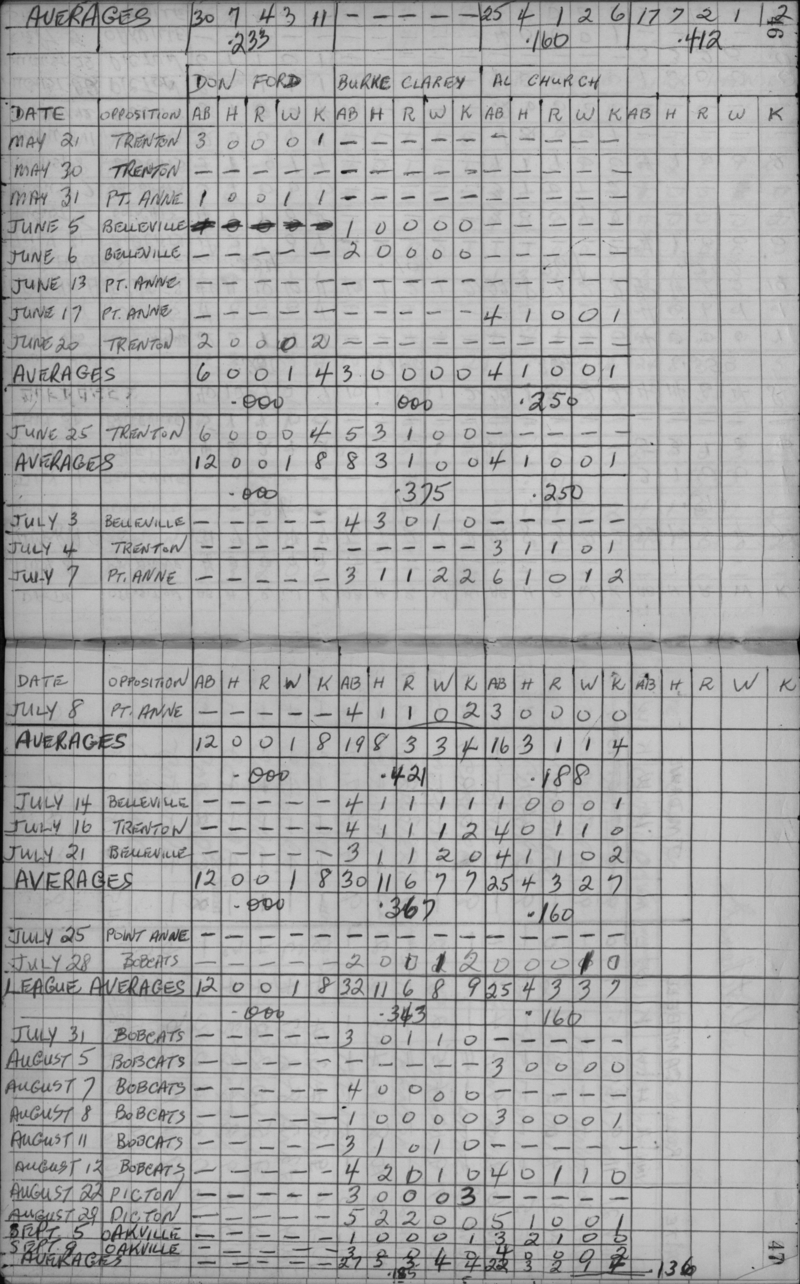 AVERAGES 30 7 4 3 11 - - - - - 25 4 1 2 6 17 7 2 1 2
46
.233 .160 .412
DON FORD BURKE CLAREY AL CHURCH
DATE OPPOSITION AB H R W K AB H R W K AB H R W K AB H R W K
MAY 21 TRENTON 3 0 0 0 1 - - - - - - - - - -
MAY 30 TRENTON - - - - - - - - - - - - - - -
MAY 31 PT. ANNE 1 0 0 1 1 - - - - - - - - - -
JUNE 5 BELLEVILLE 1 0 0 0 0 - - - - -
JUNE 6 BELLEVILLE - - - - - 2 0 0 0 0 - - - - -
JUNE 13 PT. ANNE - - - - - - - - - - - - - - -
JUNE 17 PT. ANNE - - - - - - - - - - 4 1 0 0 1
JUNE 20 TRENTON 2 0 0 0 2 - - - - - - - - - -
AVERAGES 6 0 0 1 4 3 0 0 0 0 4 1 0 0 1
.000 .000 .250
JUNE 25 TRENTON 6 0 0 0 4 5 3 1 0 0 - - - - -
AVERAGES 12 0 0 1 8 8 3 1 0 0 4 1 0 0 1
.000 .375 .250
JULY 3 BELLEVILLE - - - - - 4 3 0 1 0 - - - - -
JULY 4 TRENTON - - - - - - - - - - 3 1 1 0 1
JULY 7 PT. ANNE - - - - - 3 1 1 2 2 6 1 0 1 2
DATE OPPOSITION AB H R W K AB H R W K AB H R W K AB H R W K
JULY 8 PT. ANNE - - - - - 4 1 1 0 2 3 0 0 0 0
AVERAGES 12 0 0 1 8 19 8 3 3 4 16 3 1 1 4
.000 .421 .188
JULY 14 BELLEVILLE - - - - - 4 1 1 1 1 1 0 0 0 1
JULY 16 TRENTON - - - - - 4 1 1 1 2 4 0 1 1 0
JULY 21 BELLEVILLE - - - - - 3 1 1 2 0 4 1 1 0 2
AVERAGES 12 0 0 1 8 30 11 6 7 7 25 4 3 2 7
.000 .367 .160
JULY 25 POINT ANNE - - - - - - - - - - - - - - -
JULY 28 BOBCATS - - - - - 2 0 0 1 2 0 0 0 1 0
LEAGUE AVERAGES 12 0 0 1 8 32 11 6 8 9 25 4 3 3 7
.000 .343 .160
JULY 31 BOBCATS - - - - - 3 0 1 1 0 - - - - -
AUGUST 5 BOBCATS - - - - - - - - - - 3 0 0 0 0
AUGUST 7 BOBCATS - - - - - 4 0 0 0 0 - - - - -
AUGUST 8 BOBCATS - - - - - 1 0 0 0 0 3 0 0 0 1
AUGUST 11 BOBCATS - - - - - 3 1 0 1 0 - - - - -
AUGUST 12 BOBCATS - - - - - 4 2 0 1 0 4 0 1 1 0
AUGUST 22 PICTON - - - - - 3 0 0 0 3 - - - - -
AUGUST 29 PICTON - - - - - 5 2 2 0 0 5 1 0 0 1
SEPT. 5 OAKVILLE - - - - - 1 0 0 0 1 3 2 1 0 0
SEPT. 9 OAKVILLE - - - - - 3 0 0 4 0 0 2
AVERAGES 27 5 3 4 4 22 3 2 9 .136
.185
47